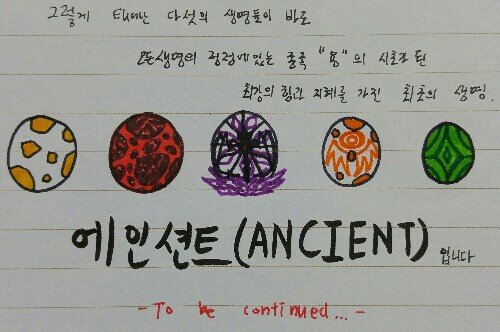 그렇게 태어난 다섯의 생명들이 바로
모든생명의 정점에있는 종족 "용"의 시초가 된
최강의 힘과 지혜를 가진 최초의 생명.
에인션트(ANCIENT) 입니다
- To be continued... -